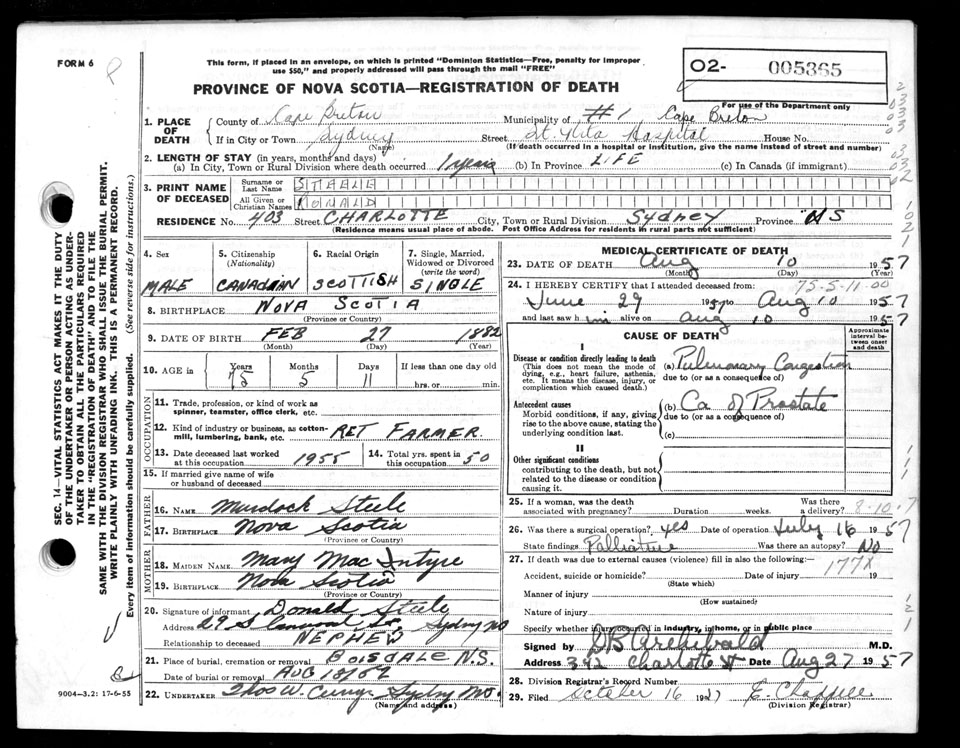 FORM 6
This form, if placed in an envelope, on which is printed "Dominion Statistics—Free, penalty for improper
use $50," and properly addressed will pass through the mail "FREE"
O2- 005365
For use of the Department only
PROVINCE OF NOVA SCOTIA—REGISTRATION OF DEATH
1. PLACE OF DEATH
County of Cape Breton Municipality of #1 Cape Breton
If in City or Town Sydney Street St. Rita Hospital House No.
(Name) (If death occurred in a hospital or institution, give the name instead of street and number)
2. LENGTH OF STAY (in years, months and days)
(a) In City, Town or Rural Division where death occurred 1 years (b) In Province LIFE (c) In Canada (if immigrant)
3. PRINT NAME OF DECEASED
Surname or Last Name STEELE
All Given or Christian Names RONALD
RESIDENCE No. 403 Street CHARLOTTE City, Town or Rural Division Sydney Province NS
(Residence means usual place of abode. Post Office Address for residents in rural parts not sufficient)
4. Sex 5. Citizenship (Nationality) 6. Racial Origin 7. Single, Married, Widowed or Divorced (write the word)
MALE CANADIAN SCOTTISH SINGLE
8. BIRTHPLACE NOVA SCOTIA
(Province or Country)
9. DATE OF BIRTH FEB 27 1882
(Month) (Day) (Year)
10. AGE in Years Months Days If less than one day old
75 5 11 hrs. or min.
OCCUPATION
11. Trade, profession, or kind of work as spinner, teamster, office clerk, etc.
12. Kind of industry or business, as cotton-mill, lumbering, bank, etc. RET FARMER.
13. Date deceased last worked at this occupation 1955 14. Total yrs. spent in this occupation 50
15. If married give name of wife or husband of deceased
FATHER
16. NAME Murdock Steele
17. BIRTHPLACE Nova Scotia
(Province or Country)
MOTHER
18. MAIDEN NAME Mary MacIntyre
19. BIRTHPLACE Nova Scotia
(Province or Country)
20. Signature of informant Donald Steele
Address 29 St. Sydney NS
Relationship to deceased NEPHEW
21. Place of burial, cremation or removal BOISDALE N.S.
Date of burial or removal AUG
22. UNDERTAKER Thos W. Curry Sydney
(Name and address)
MEDICAL CERTIFICATE OF DEATH
23. DATE OF DEATH Aug 10 1957
(Month) (Day) (Year)
24. I HEREBY CERTIFY that I attended deceased from: 75-5-11-00
June 29 1957 to Aug 10 1957
and last saw h im alive on Aug 10 1957
CAUSE OF DEATH
Approximate interval between onset and death
I
Disease or condition directly leading to death
(This does not mean the mode of dying, e.g., heart failure, asthenia, etc. It means the disease, injury, or complication which caused death.)
(a) Pulmonary Congestion
due to (or as a consequence of)
Antecedent causes
Morbid conditions, if any, giving rise to the above cause, stating the underlying condition last.
(b) Ca of Prostate
due to (or as a consequence of)
(c)
II
Other significant conditions
contributing to the death, but not related to the disease or condition causing it.
25. If a woman, was the death associated with pregnancy? Duration weeks. Was there a delivery? 8-10-7
26. Was there a surgical operation? yes Date of operation July 16 1957
State findings Palliative Was there an autopsy? No
27. If death was due to external causes (violence) fill in also the following:— 177X
Accident, suicide or homicide? Date of injury 19
(State which)
Manner of injury
(How sustained)
Nature of injury
Specify whether injury occurred in industry, in home, or in public place
Signed by DB Archibald M.D.
Address 392 Charlotte St Date Aug 27 1957
28. Division Registrar's Record Number
29. Filed October 16 1957 E. Chappell
(Division Registrar)
SEC. 14—VITAL STATISTICS ACT MAKES IT THE DUTY
OF THE UNDERTAKER OR PERSON ACTING AS UNDER-
TAKER TO OBTAIN ALL THE PARTICULARS REQUIRED
IN THE "REGISTRATION OF DEATH" AND TO FILE THE
SAME WITH THE DIVISION REGISTRAR WHO SHALL ISSUE THE BURIAL PERMIT.
WRITE PLAINLY WITH UNFADING INK. THIS IS A PERMANENT RECORD.
Every item of information should be carefully supplied. (See reverse side for instructions.)
9004-3.2: 17-6-55